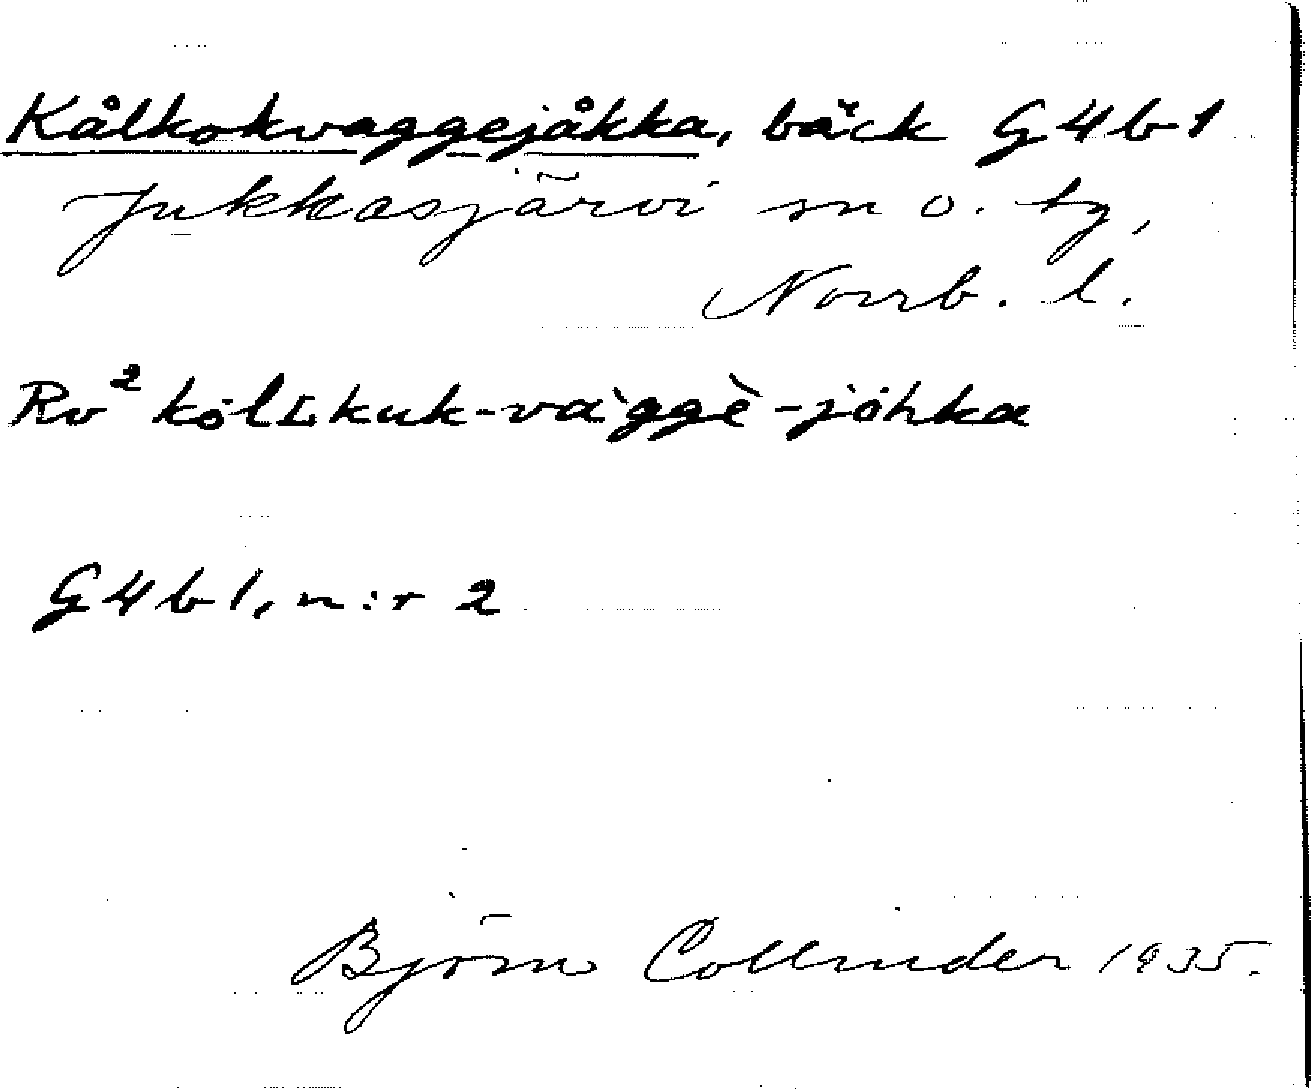 Kålkokvaggejåkka, bäck G4b1
Jukkasjärvi sn o. tg,
Norrb. l.
Rv² kȯlʟkuk-và̀ggè-jȯhka
G4b1, n:r 2
Björn Collinder 1935.